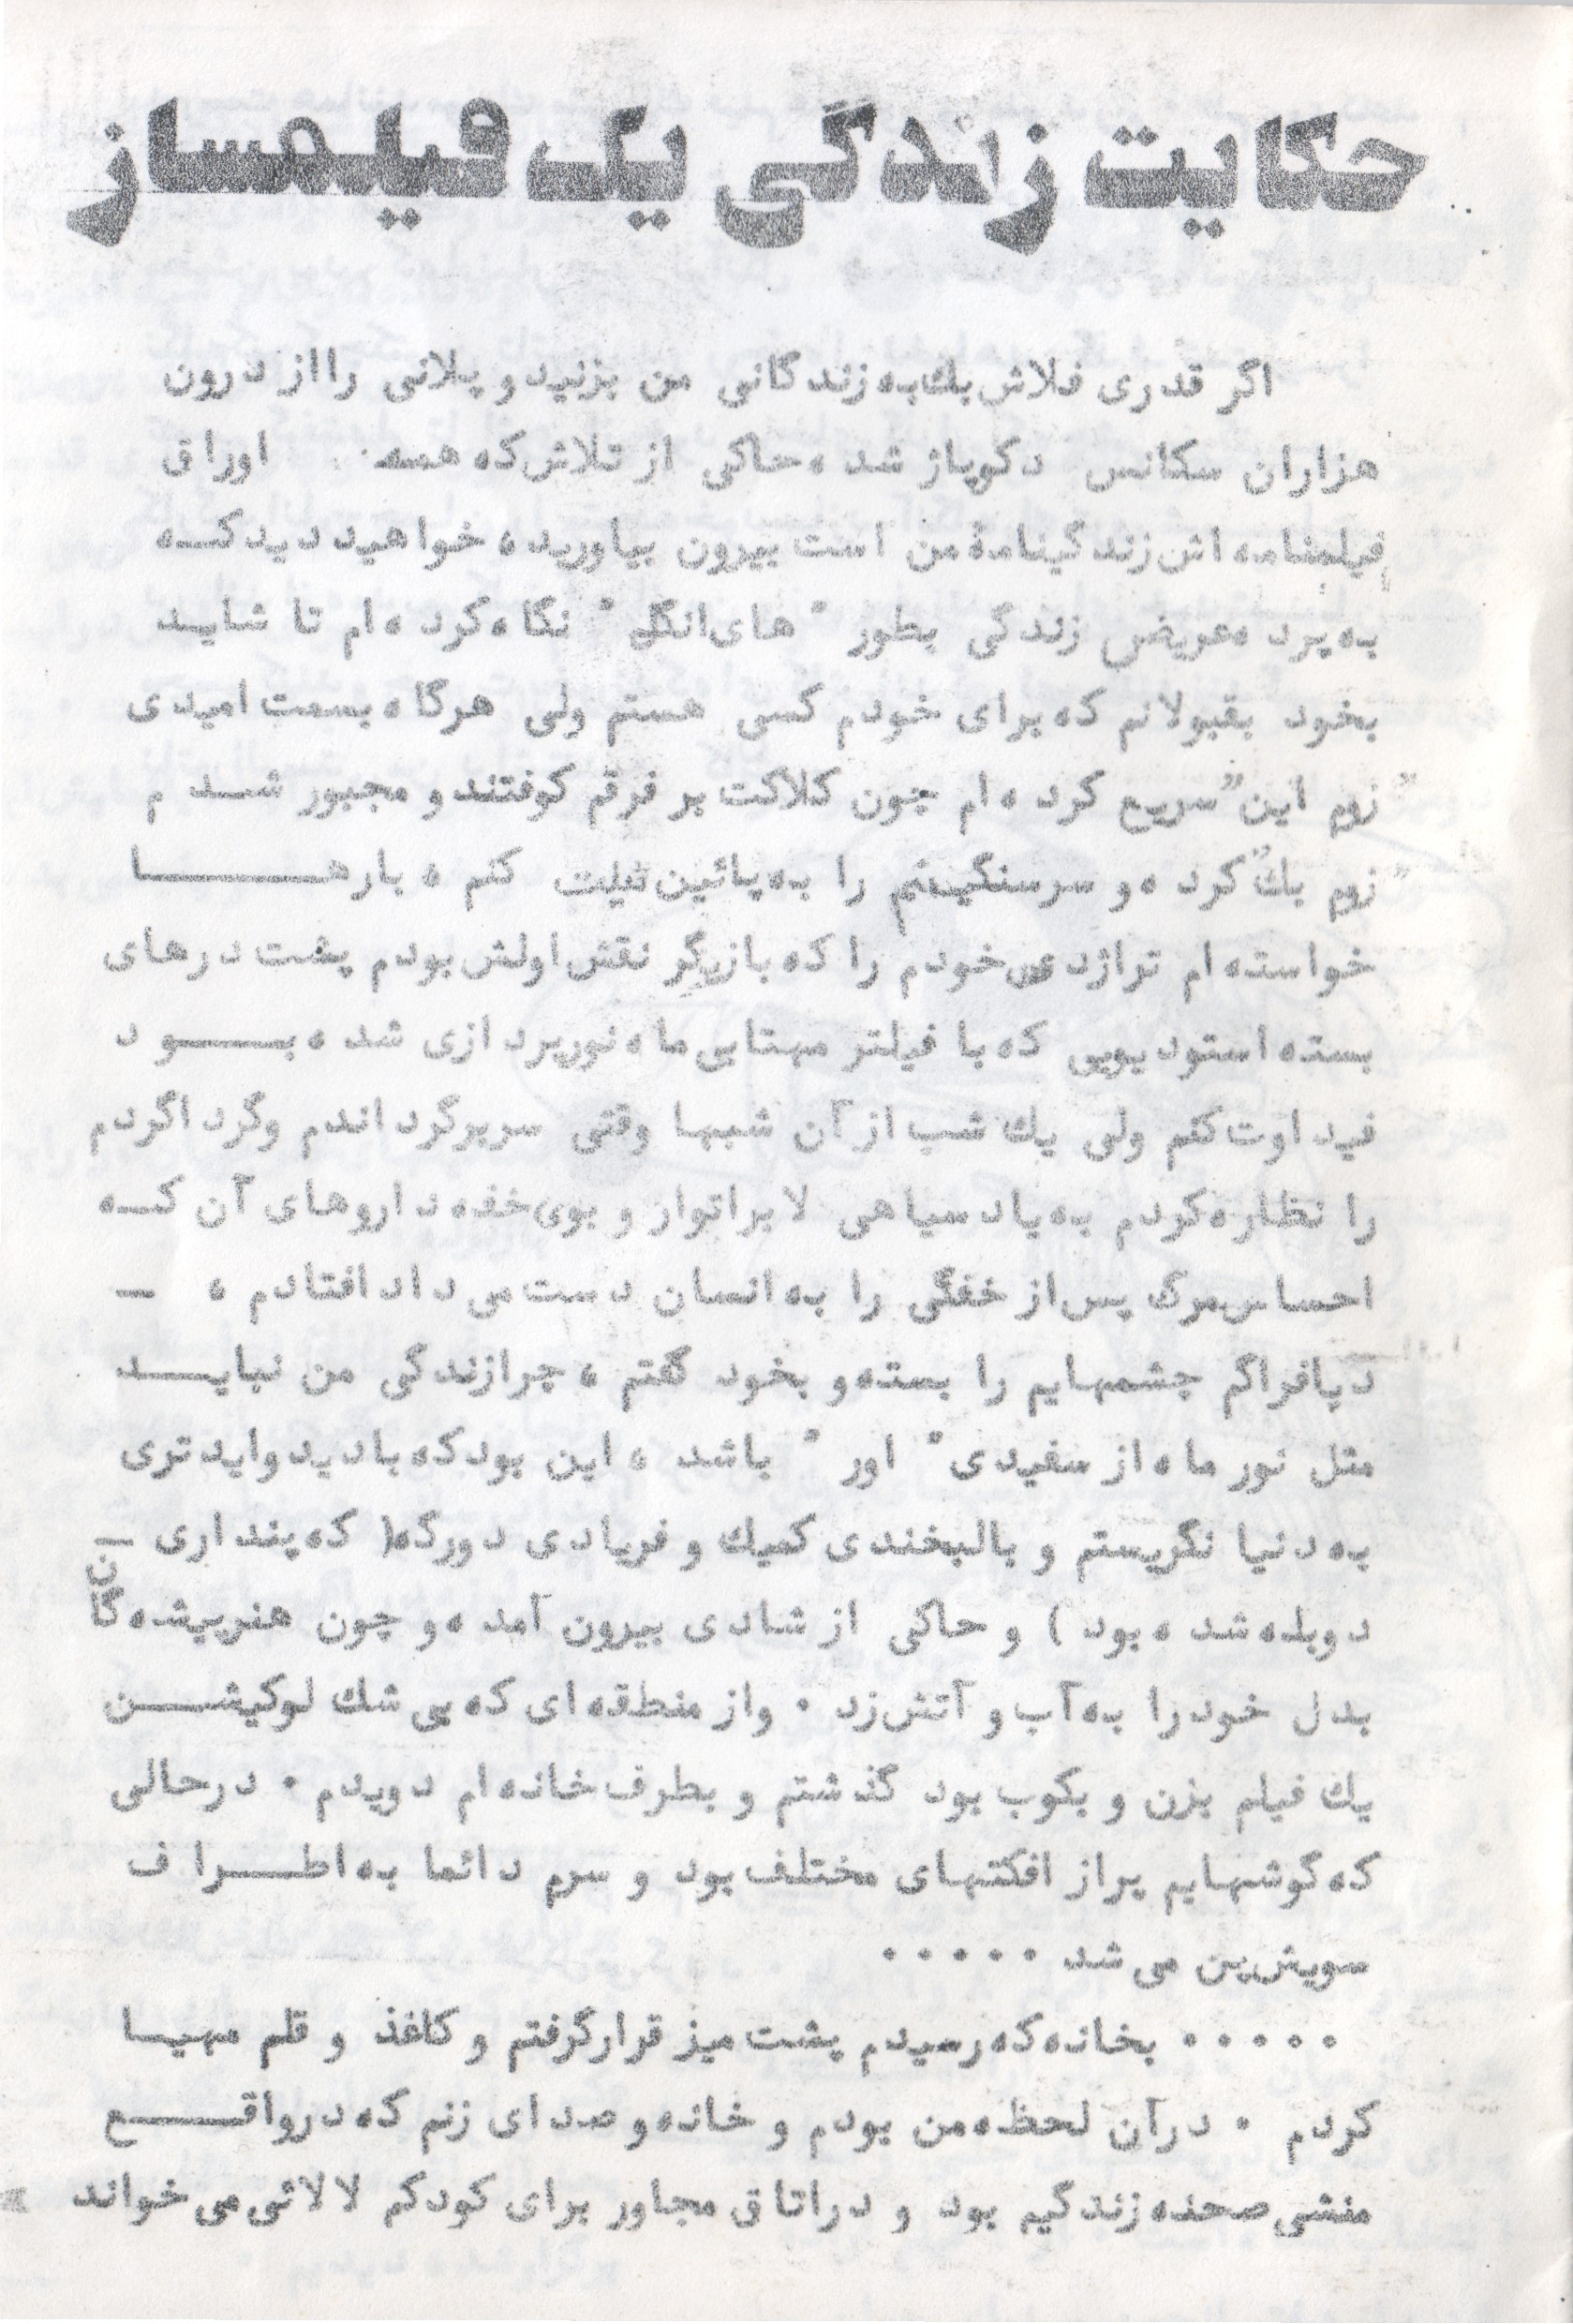 حکایت زندگی یک فیلمساز
اگر قدری فلاش بك به زندگانی من بزنید و پلانی را از درون
هزاران سکانس دکوپاژ شده حاکی از تلاش که همه اوراق
فیلمنامه اش زندگینامهٔ من است بیرون بیاورید، خواهید دید کـه
به پرده عریض زندگی بطور "های انگل" نگاه کرده ام تا شایـد
بخود بقبولانم که برای خودم کسی هستم ولی هرگاه بسمت امیدی
"زوم این" سریع کرده ام چون کلاکت بر فرقم کوفتند و مجبور شـدم
"زوم بك" کرده و سر سنگینم را به پائین تیلت کنم، بارهــا
خواسته ام تراژدی خودم را که بازیگر نقش اولش بودم پشت درهای
بسته استودیویی که با فیلتر مهتابی ماه نورپردازی شده بــود
فید اوت کنم ولی یك شب از آن شبها وقتی سر برگرداندم وگرداگردم
را نظاره کردم به یاد سیاهی لابراتوار و بوی خفه داروهای آن کـه
احساس مرگ پس از خفگی را به انسان دست می داد افتادم، –
دیافراگم چشمهایم را بسته و بخود گفتم، چرا زندگی من نبایــد
مثل نور ماه از سفیدی "اور" باشد، این بود که با دید واید تری
به دنیا نگریستم و با لبخندی کمیك و فریادی دورگه( که پنداری –
دوبله شده بود ) و حاکی از شادی بیرون آمده و چون هنرپیشه گان
بدل خود را به آب و آتش زد . و از منطقه ای که بی شك لوکیشــن
یك فیلم بزن و بکوب بود گذشتم و بطرف خانه ام دویدم . در حالی
که گوشهایم پر از افکتهای مختلف بود و سرم دائما به اطــراف
سویش پن می شد .....
..... بخانه که رسیدم پشت میز قرار گرفتم و کاغذ و قلم مهیـا
کردم . در آن لحظه من بودم و خانه و صدای زنم که در واقــع
منشی صحنه زندگیم بود و در اتاق مجاور برای کودکم لالائی می خواند